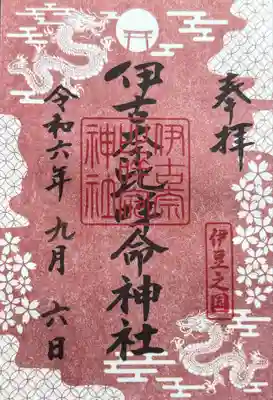 奉拝
伊豆之国
伊古奈比咩命神社
伊古奈
神社
令和六年九月六日